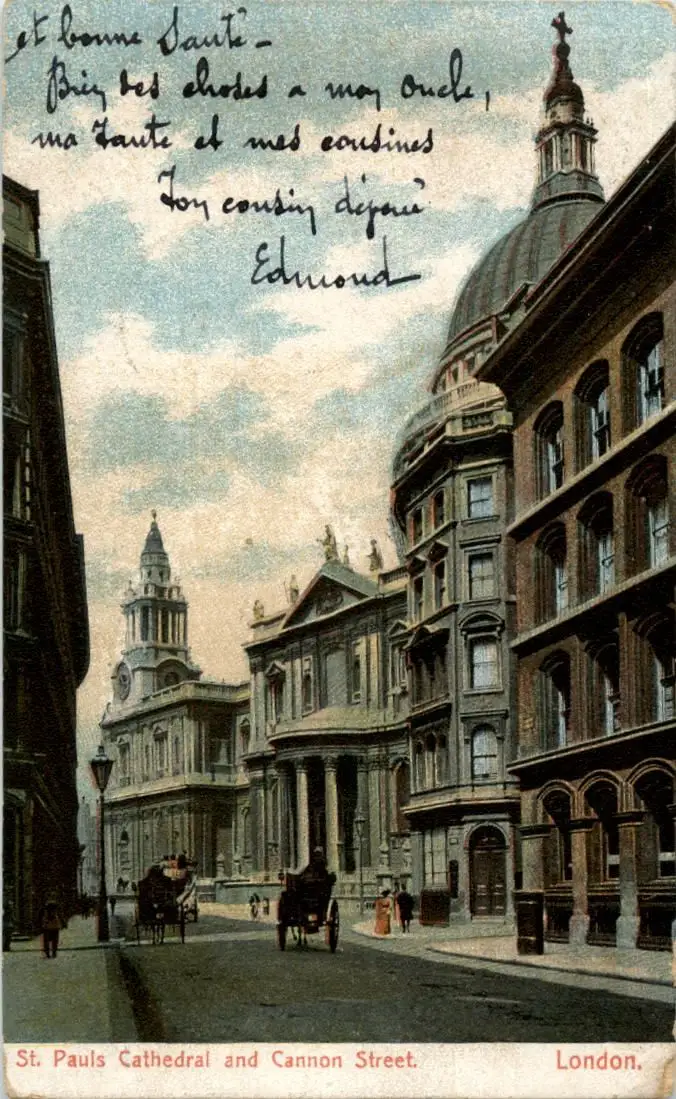 et bonne Santé –
Bien des choses a mon Oncle,
ma Tante et mes cousines
Ton cousin dépeué
Edmond
St. Pauls Cathedral and Cannon Street. London.